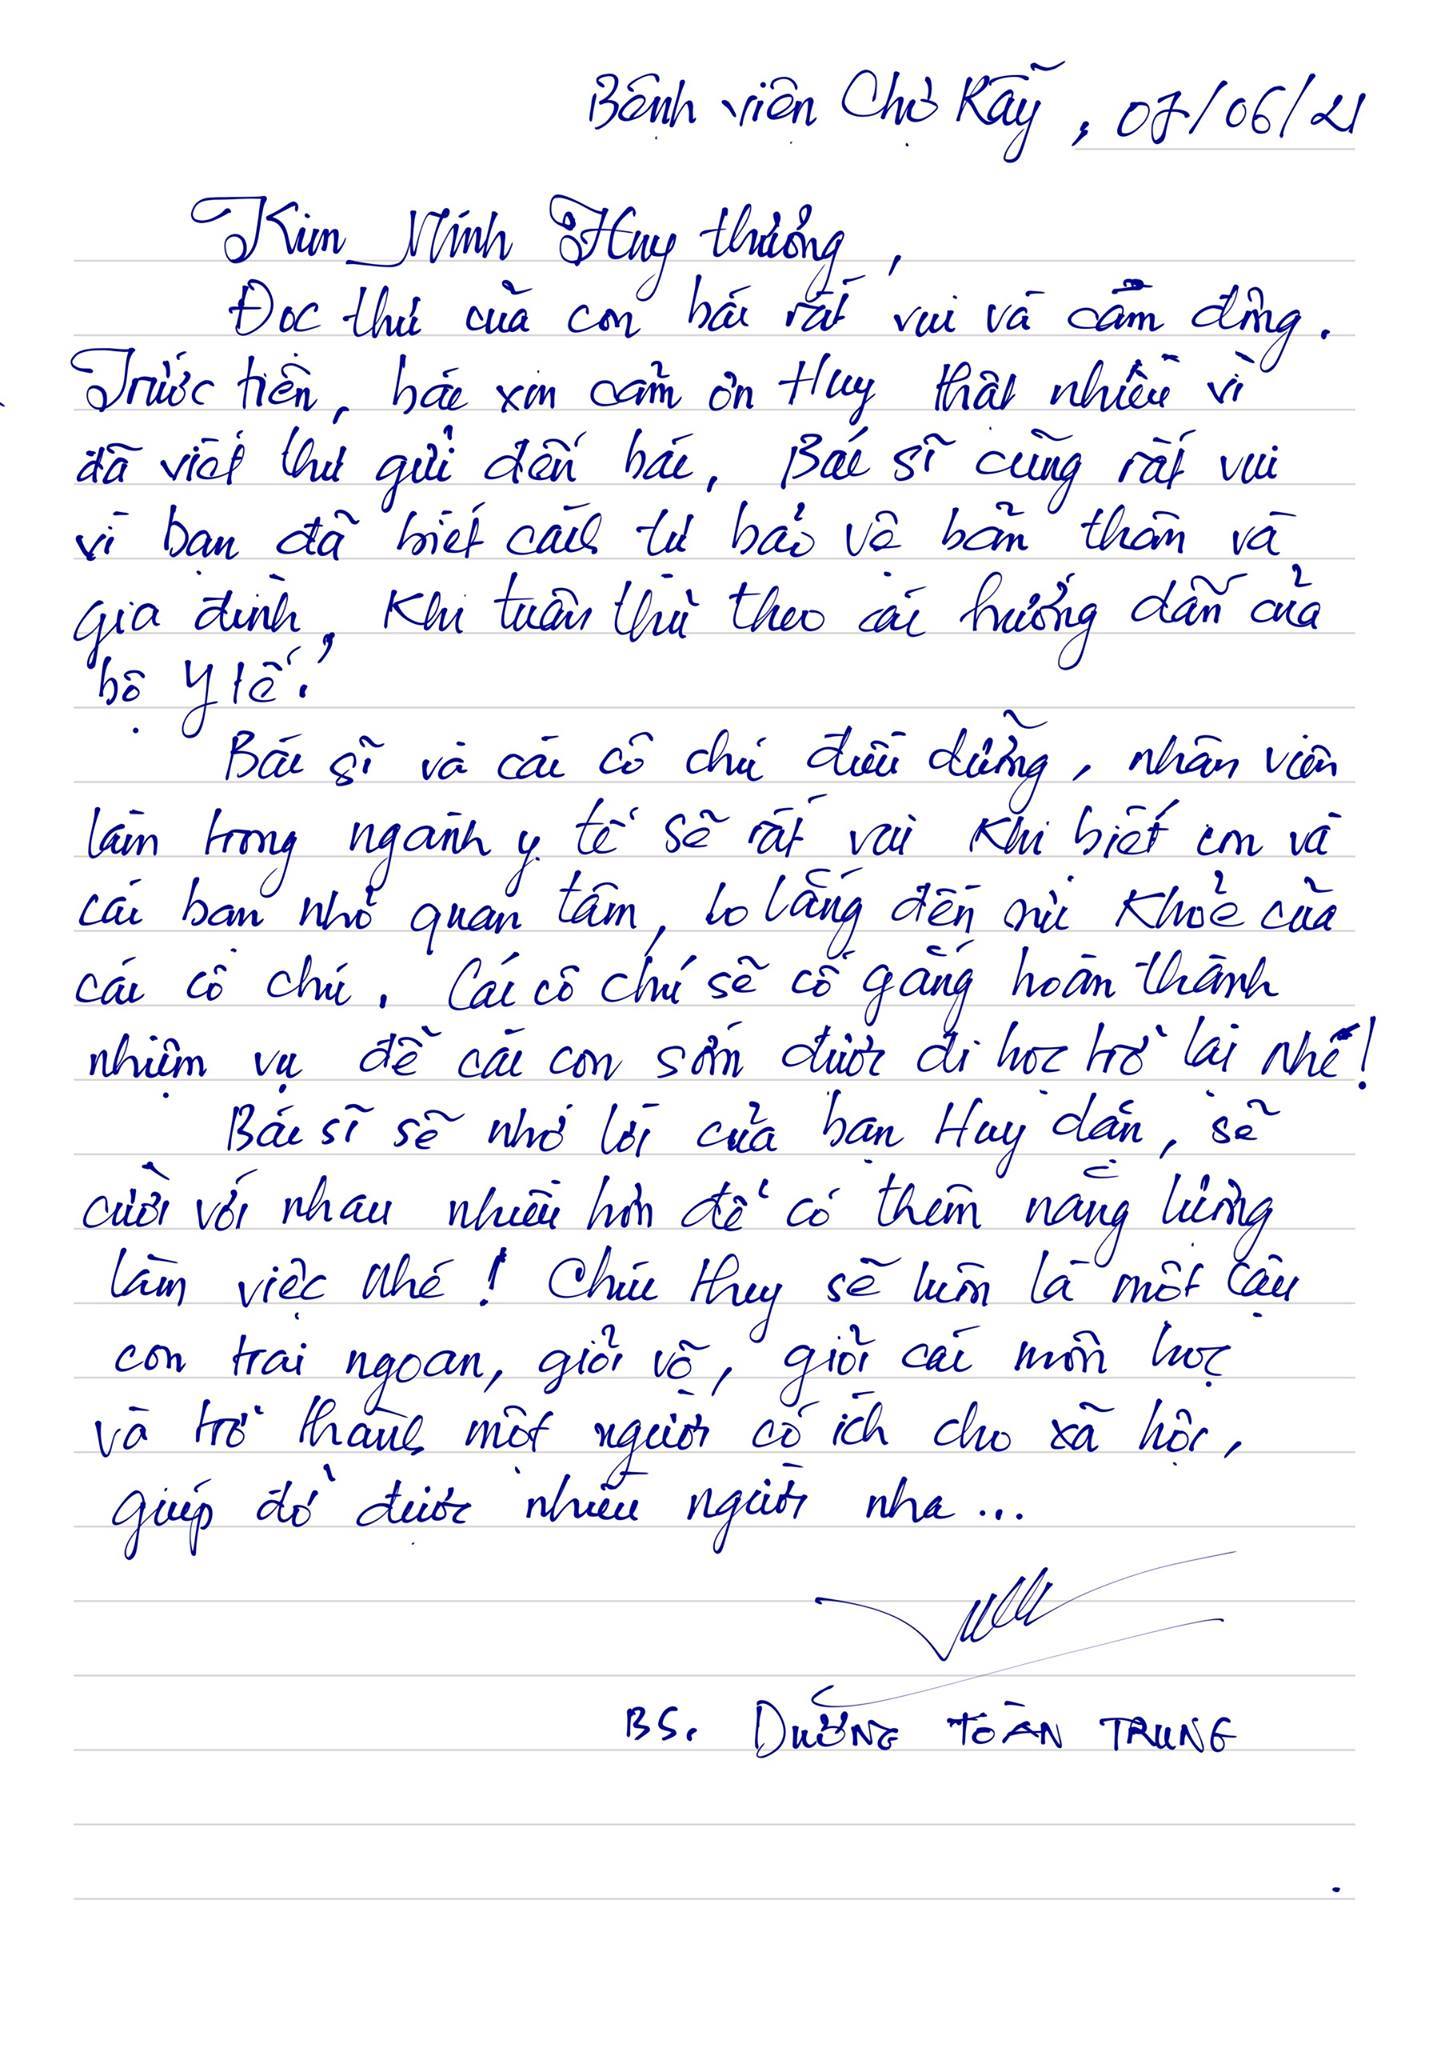 Bệnh viện Chợ Rẫy, 07/06/21
Kim Minh Huy thương,
Đọc thư của con bác rất vui và cảm động.
Trước tiên, bác xin cảm ơn Huy thật nhiều vì
đã viết thư gửi đến bác. Bác sĩ cũng rất vui
vì bạn đã biết cách tự bảo vệ bản thân và
gia đình, khi tuân thủ theo các hướng dẫn của
bộ Y tế!
Bác sĩ và các cô chú điều dưỡng, nhân viên
làm trong ngành y tế sẽ rất vui khi biết con và
các bạn nhỏ quan tâm, lo lắng đến sức khoẻ của
các cô chú. Các cô chú sẽ cố gắng hoàn thành
nhiệm vụ để các con sớm được đi học trở lại nhé!
Bác sĩ sẽ nhớ lời của bạn Huy dặn, sẽ
cười với nhau nhiều hơn để có thêm năng lượng
làm việc nhé! Chúc Huy sẽ luôn là một cậu
con trai ngoan, giỏi võ, giỏi các môn học
và trở thành một người có ích cho xã hội,
giúp đỡ được nhiều người nha...
BS. DƯƠNG TOÀN TRUNG